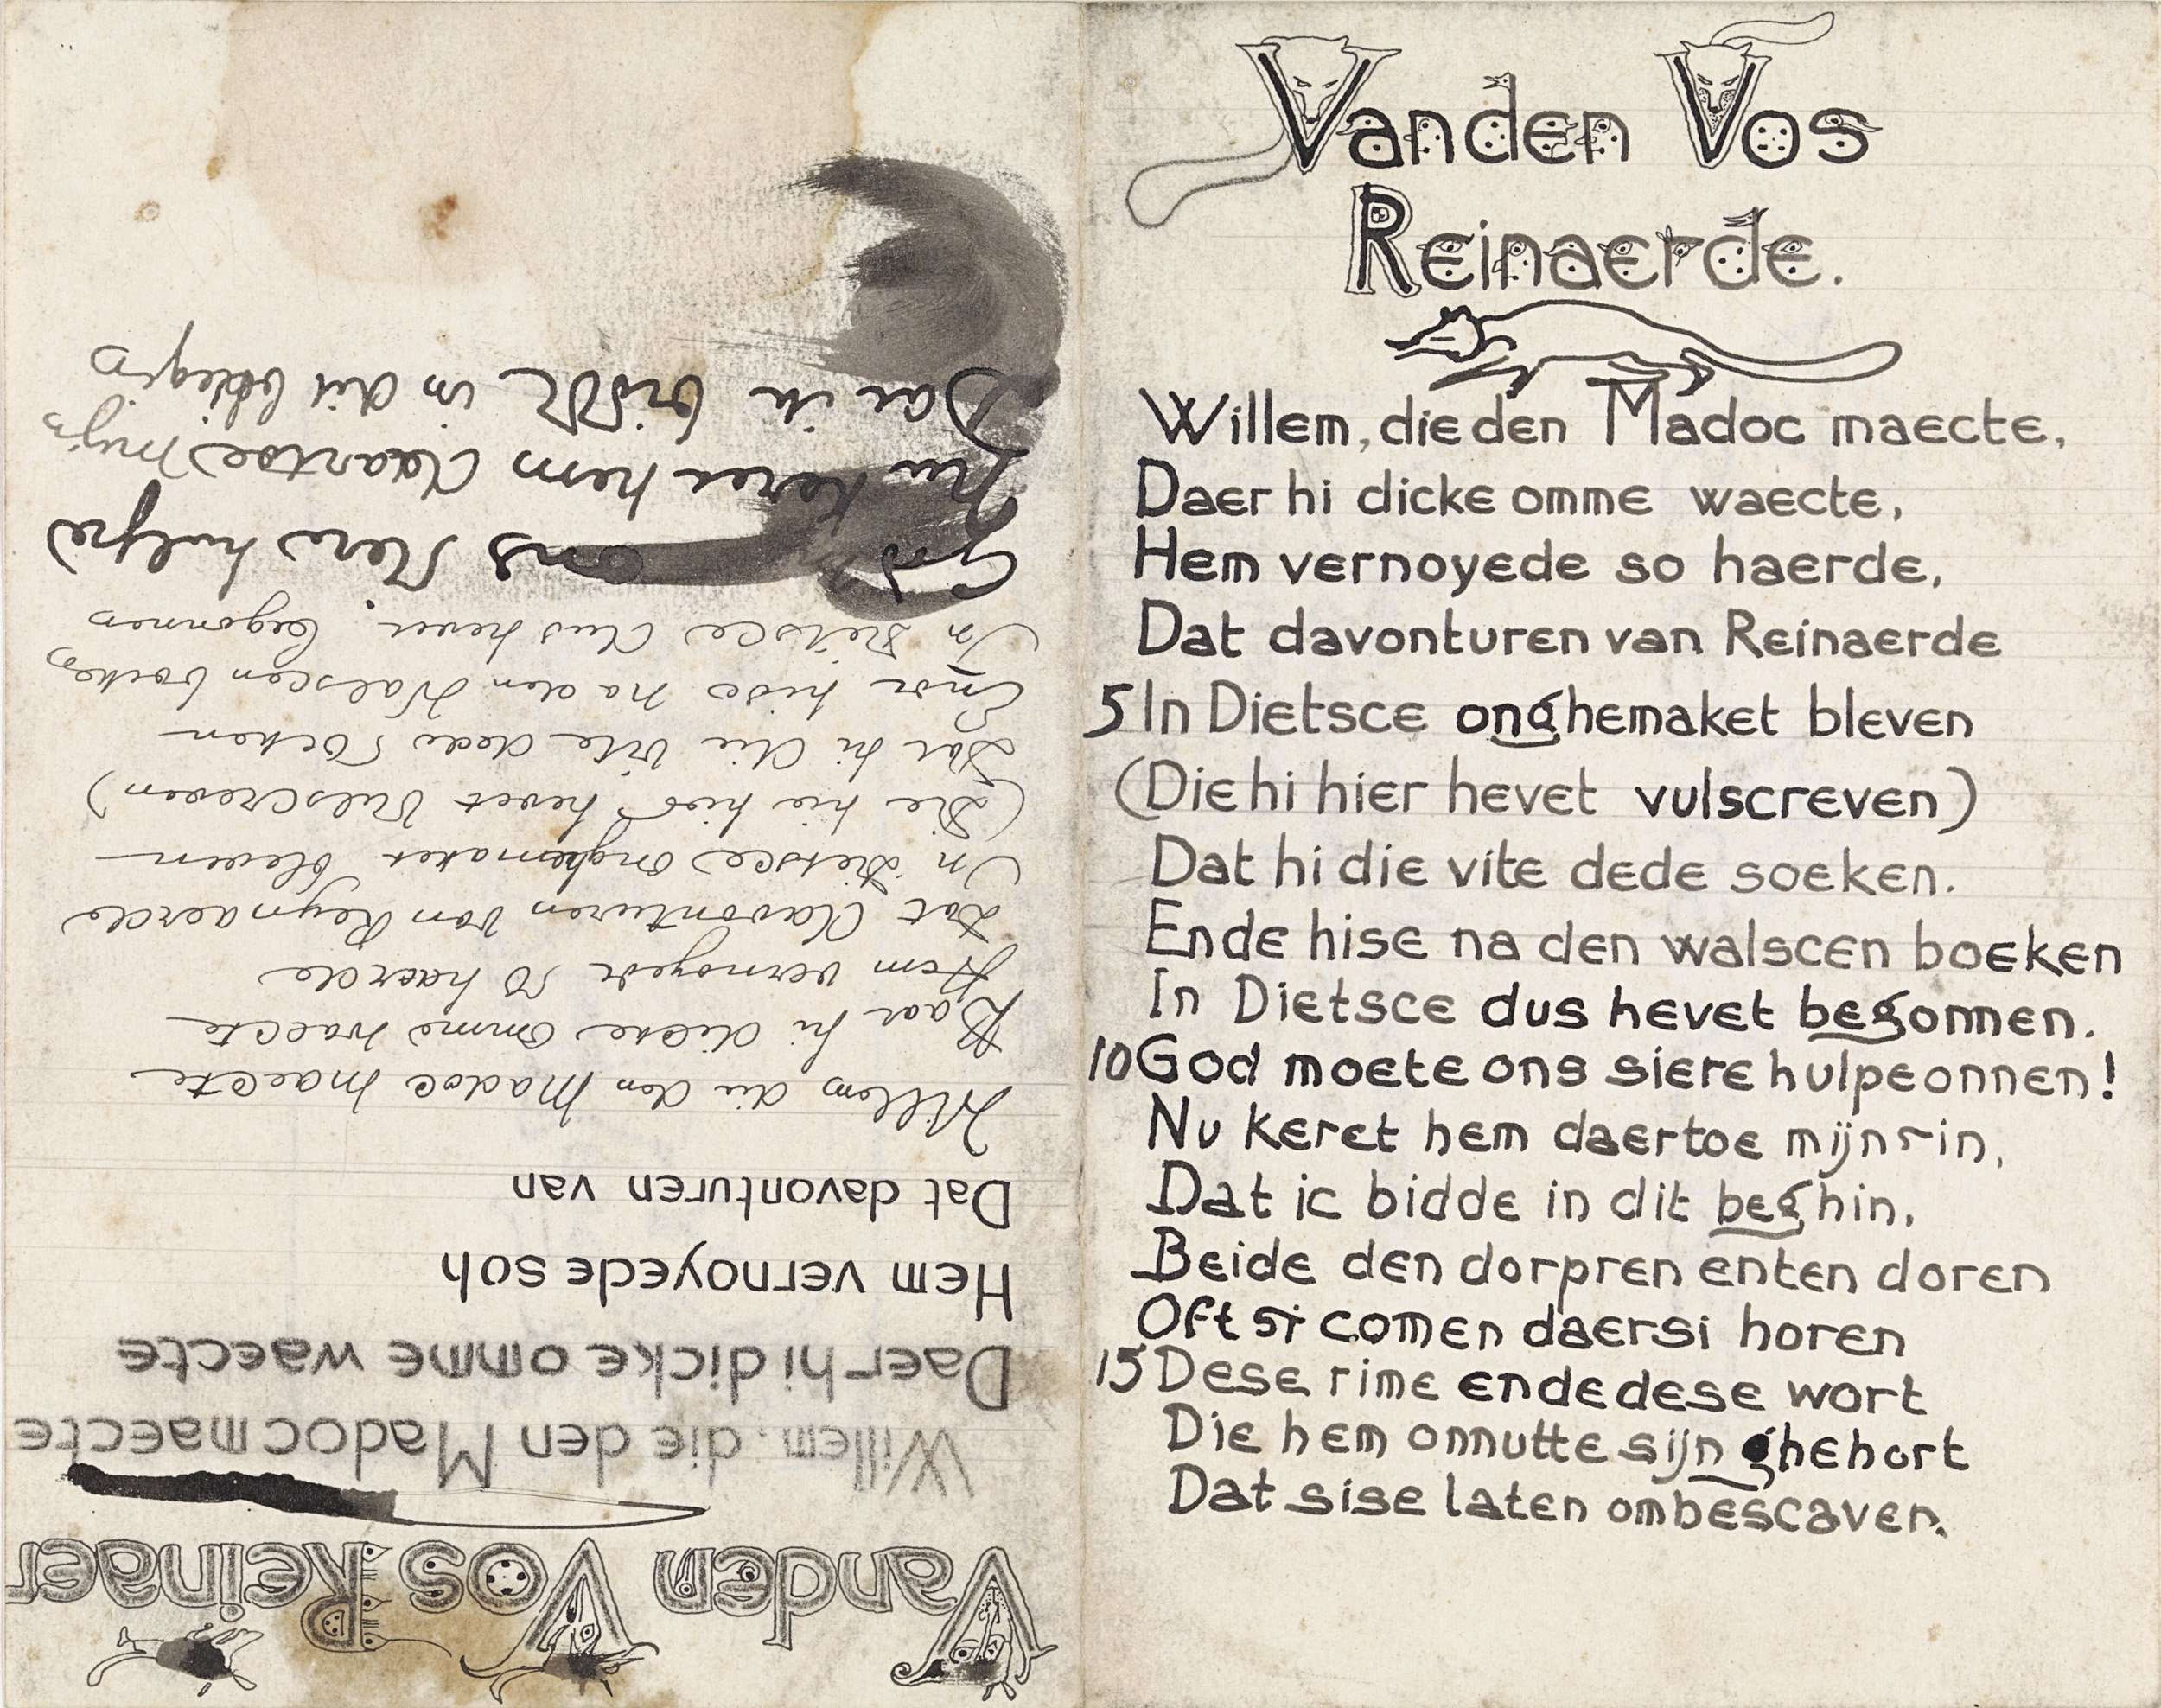 Vanden Vos
Reinaerde.
Willem, die den Madoc maecte,
Daer hi dicke omme waecte,
Hem vernoyede so haerde,
Dat davonturen van Reinaerde
5 In Dietsce onghemaket bleven
(Die hi hier hevet vulscreven)
Dat hi die vite dede soeken.
Ende hise na den walscen boeken
In Dietsce dus hevet begonnen.
10 God moete ons siere hulpe onnen!
Nu keret hem daertoe mijn sin,
Dat ic bidde in dit beghin,
Beide den dorpren enten doren
Oft si comen daer si horen
15 Dese rime ende dese wort
Die hem onnutte sijn ghehort
Dat sise laten ombescaven.
Vanden Vos Reinaer
Willem. die den Madoc maecte
Daer hi dicke omme waecte
Hem vernoyede soh
Dat davonturen van
Willem die den Madoc maecte
Daar hi dicke omme waecte
Hem vernoyede so haerde
Dat davonturen van Reynaerde
In Dietsce onghemaket bleven
(Die hie hier hevet vulscreven)
Dat hi die vite dede soeken
Ende hise na den Walscen boeken
In Dietsce dus hevet begonnen
God ons siere hulpe
Nu keret hem daartoe mijn
Dat ic bidde in dit beleghin